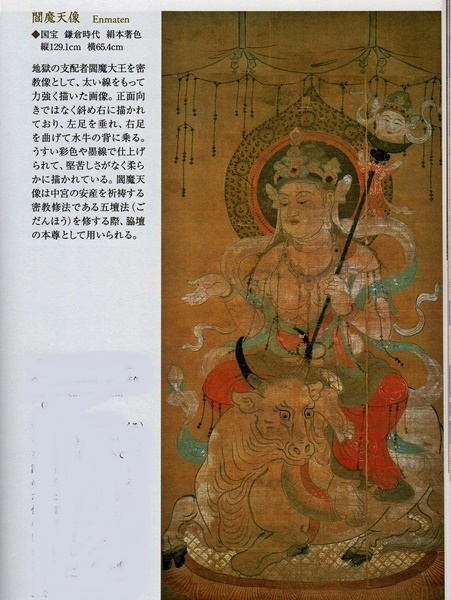 閻魔天像 Enmaten
◆国宝 鎌倉時代 絹本著色
縦129.1cm 横65.4cm
地獄の支配者閻魔大王を密
教像として、太い線をもって
力強く描いた画像。正面向
きではなく斜め右に描かれ
ており、左足を垂れ、右足
を曲げて水牛の背に乗る。
うすい彩色や墨線で仕上げ
られて、堅苦しさがなく柔ら
かに描かれている。閻魔天
像は中宮の安産を祈祷する
密教修法である五壇法(ご
だんほう)を修する際、脇壇
の本尊として用いられる。